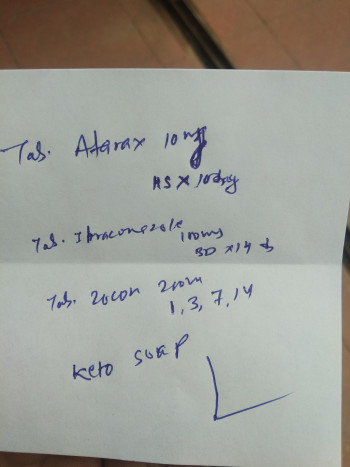 Tab. Atarax 10mg
HS X 10day
Tab. Itraconazole 100mg
BD X 14 d
Tab. Zocon 200m
1, 3, 7, 14
Keto soap